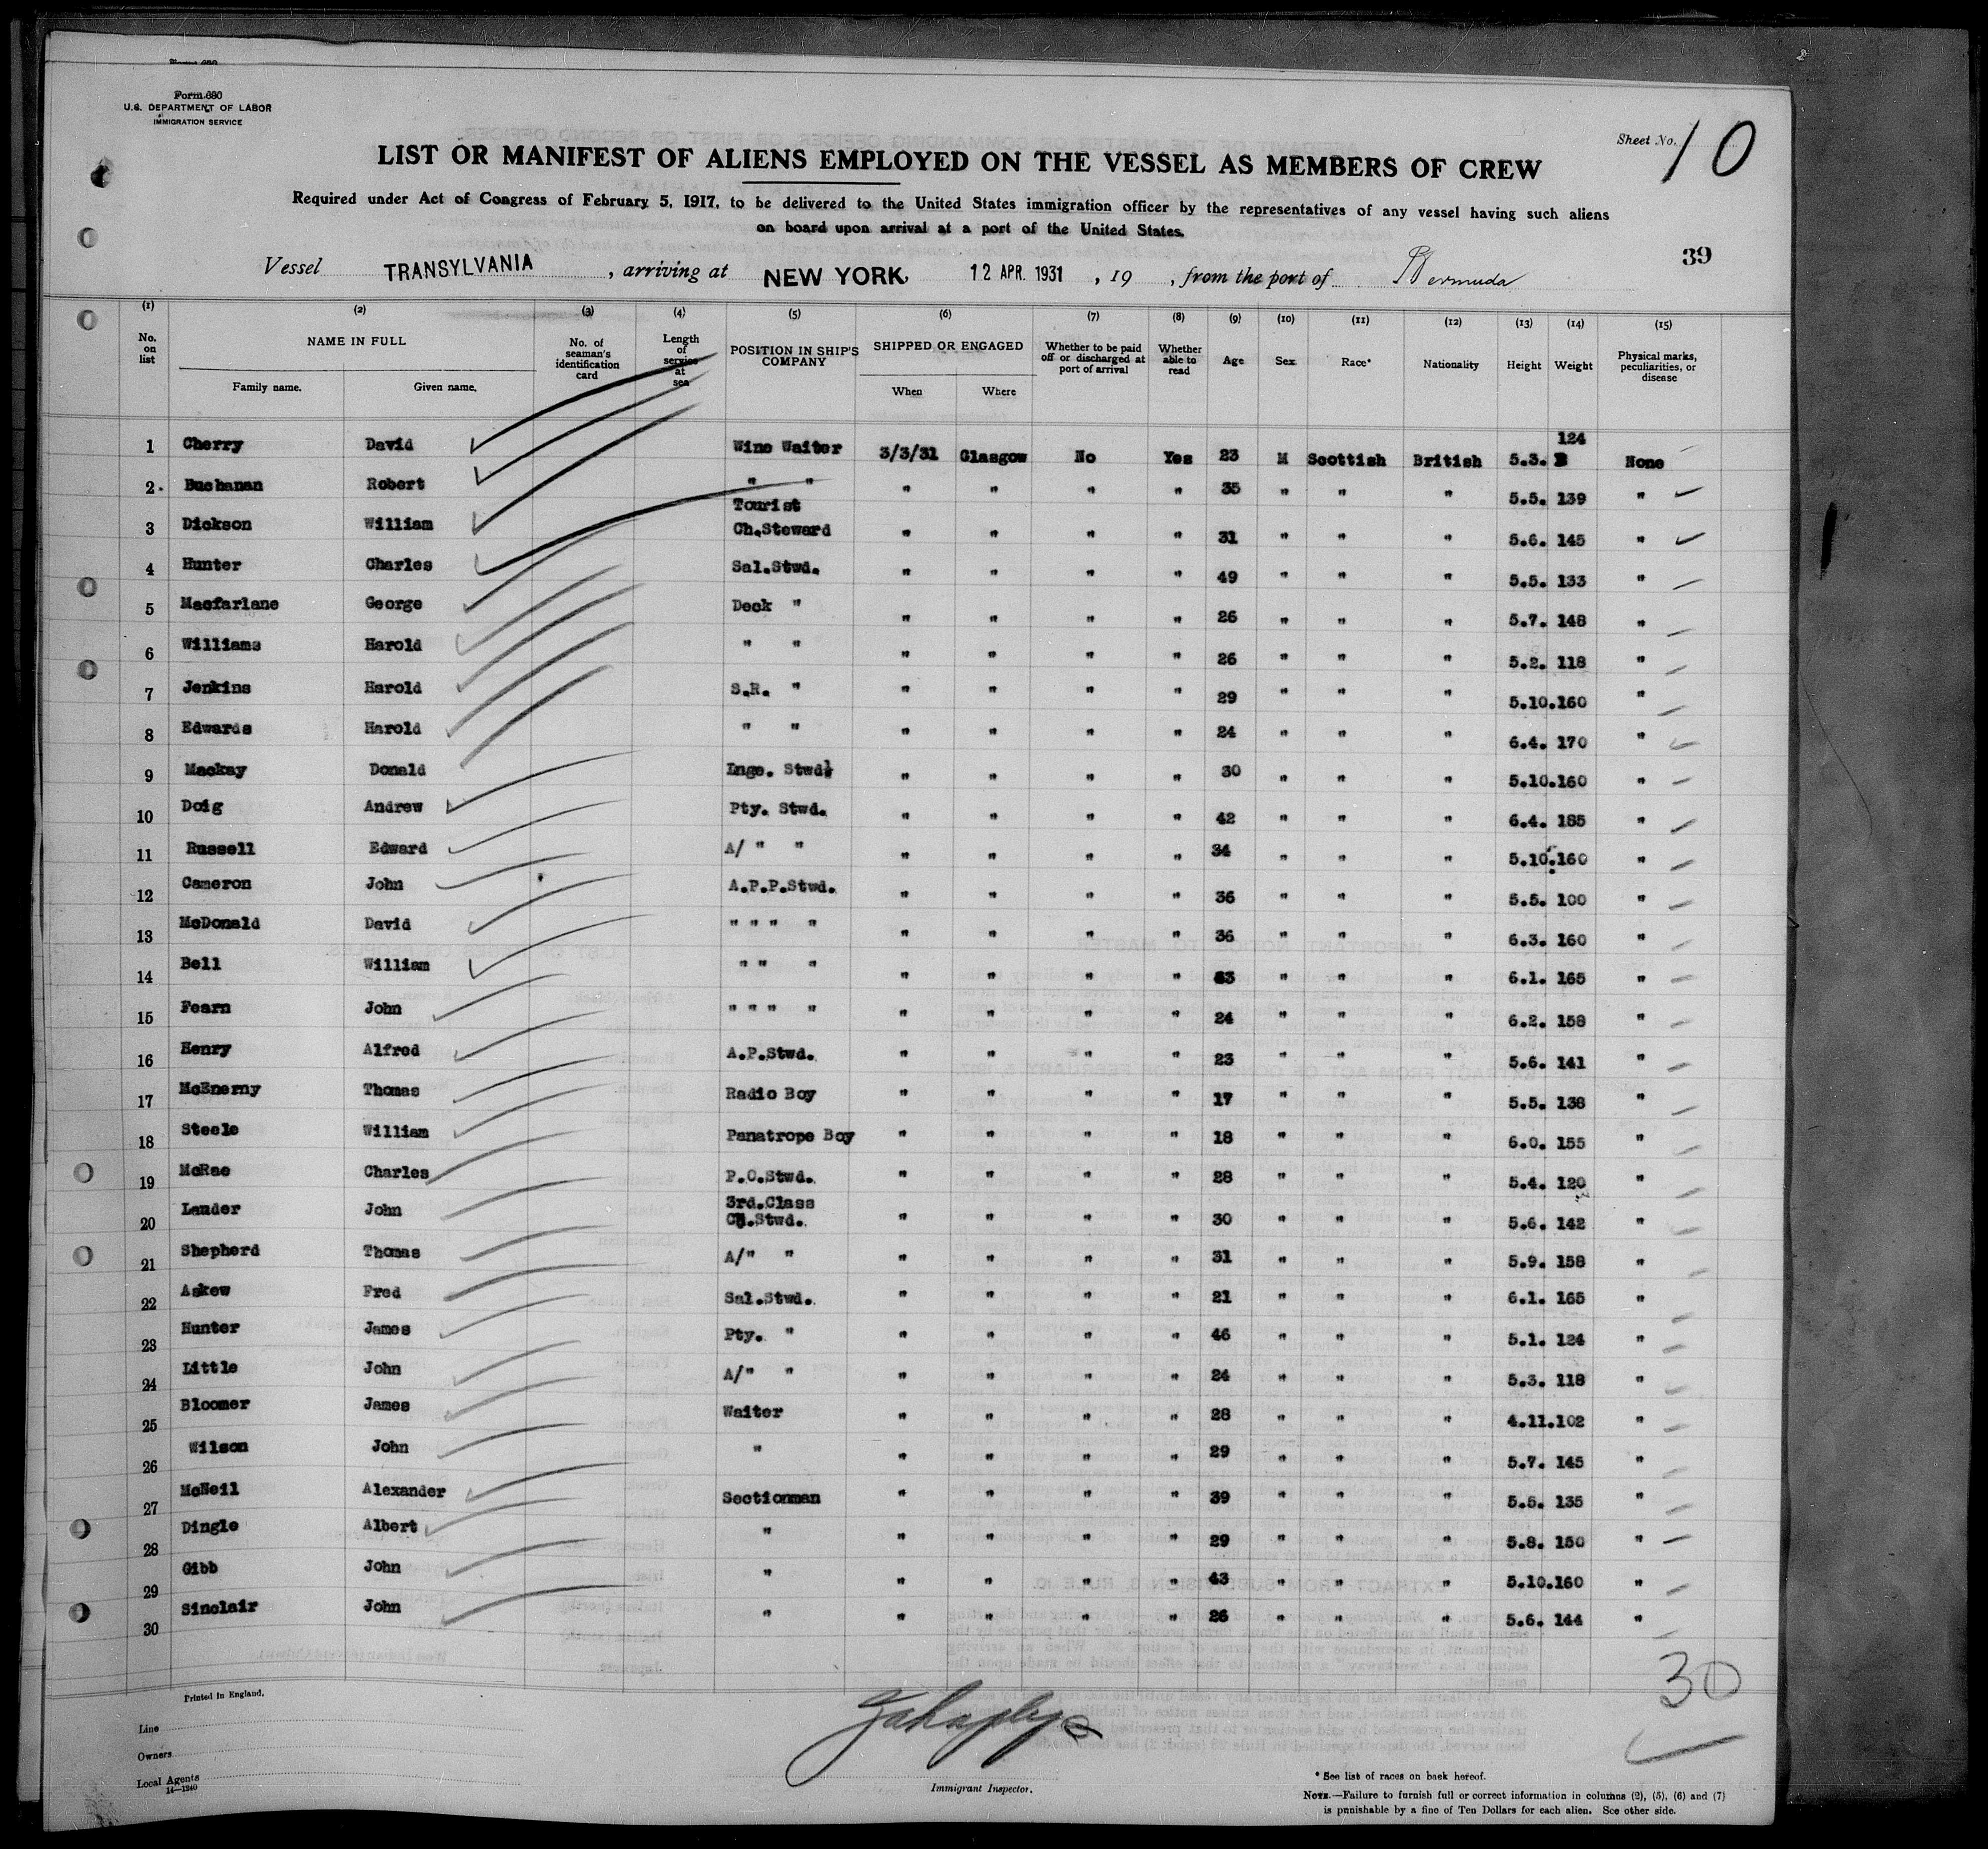 Form 680
U.S. DEPARTMENT OF LABOR
IMMIGRATION SERVICE
Sheet No. 10
LIST OR MANIFEST OF ALIENS EMPLOYED ON THE VESSEL AS MEMBERS OF CREW
Required under Act of Congress of February 5, 1917, to be delivered to the United States immigration officer by the representatives of any vessel having such aliens
on board upon arrival at a port of the United States.
39
Vessel TRANSYLVANIA , arriving at NEW YORK, 12 APR. 1931 , 19 , from the port of Bermuda
(1) (2) (3) (4) (5) (6) (7) (8) (9) (10) (11) (12) (13) (14) (15)
No. on list NAME IN FULL Family name. Given name. No. of seaman's identification card Length of service at sea POSITION IN SHIP'S COMPANY SHIPPED OR ENGAGED When Where Whether to be paid off or discharged at port of arrival Whether able to read Age Sex Race* Nationality Height Weight Physical marks, peculiarities, or disease
1 Cherry David Wine Waiter 3/3/31 Glasgow No Yes 23 M Scottish British 5.3. 124 None
2 Buchanan Robert " " " " " " 35 " " " 5.5. 139 "
3 Dickson William Tourist Ch.Steward " " " " 31 " " " 5.6. 145 "
4 Hunter Charles Sal.Stwd. " " " " 49 " " " 5.5. 133 "
5 Macfarlane George Deck " " " " " 26 " " " 5.7. 148 "
6 Williams Harold " " " " " " 26 " " " 5.2. 118 "
7 Jenkins Harold S.R. " " " " " 29 " " " 5.10. 160 "
8 Edwards Harold " " " " " " 24 " " " 6.4. 170 "
9 Mackay Donald Lnge. Stwd. " " " " 30 " " " 5.10. 160 "
10 Doig Andrew Pty. Stwd. " " " " 42 " " " 6.4. 185 "
11 Russell Edward A/ " " " " " " 34 " " " 5.10. 160 "
12 Cameron John A.P.P.Stwd. " " " " 36 " " " 5.5. 100 "
13 McDonald David " " " " " " " " 36 " " " 6.3. 160 "
14 Bell William " " " " " " " " " " 6.1. 165 "
15 Fearn John " " " " " " " " 24 " " " 6.2. 158 "
16 Henry Alfred A.P.Stwd. " " " " 23 " " " 5.6. 141 "
17 McEnerny Thomas Radio Boy " " " " 17 " " " 5.5. 138 "
18 Steele William Panatrope Boy " " " " 18 " " " 6.0. 155 "
19 McRae Charles P.O.Stwd. " " " " 28 " " " 5.4. 120 "
20 Lauder John 3rd.Class Ch.Stwd. " " " " 30 " " " 5.6. 142 "
21 Shepherd Thomas A/" " " " " " 31 " " " 5.9. 158 "
22 Askew Fred Sal.Stwd. " " " " 21 " " " 6.1. 165 "
23 Hunter James Pty. " " " " " 46 " " " 5.1. 124 "
24 Little John A/" " " " " " 24 " " " 5.3. 118 "
25 Bloomer James Waiter " " " " 28 " " " 4.11. 102 "
26 Wilson John " " " " " 29 " " " 5.7. 145 "
27 McNeil Alexander Sectionman " " " " 39 " " " 5.5. 135 "
28 Dingle Albert " " " " " 29 " " " 5.8. 150 "
29 Gibb John " " " " " 43 " " " 5.10. 160 "
30 Sinclair John " " " " " 26 " " " 5.6. 144 "
30
Printed in England.
Line
Owners
Local Agents
14—1240
Immigrant Inspector.
* See list of races on back hereof.
NOTE.—Failure to furnish full or correct information in columns (2), (5), (6) and (7)
is punishable by a fine of Ten Dollars for each alien. See other side.